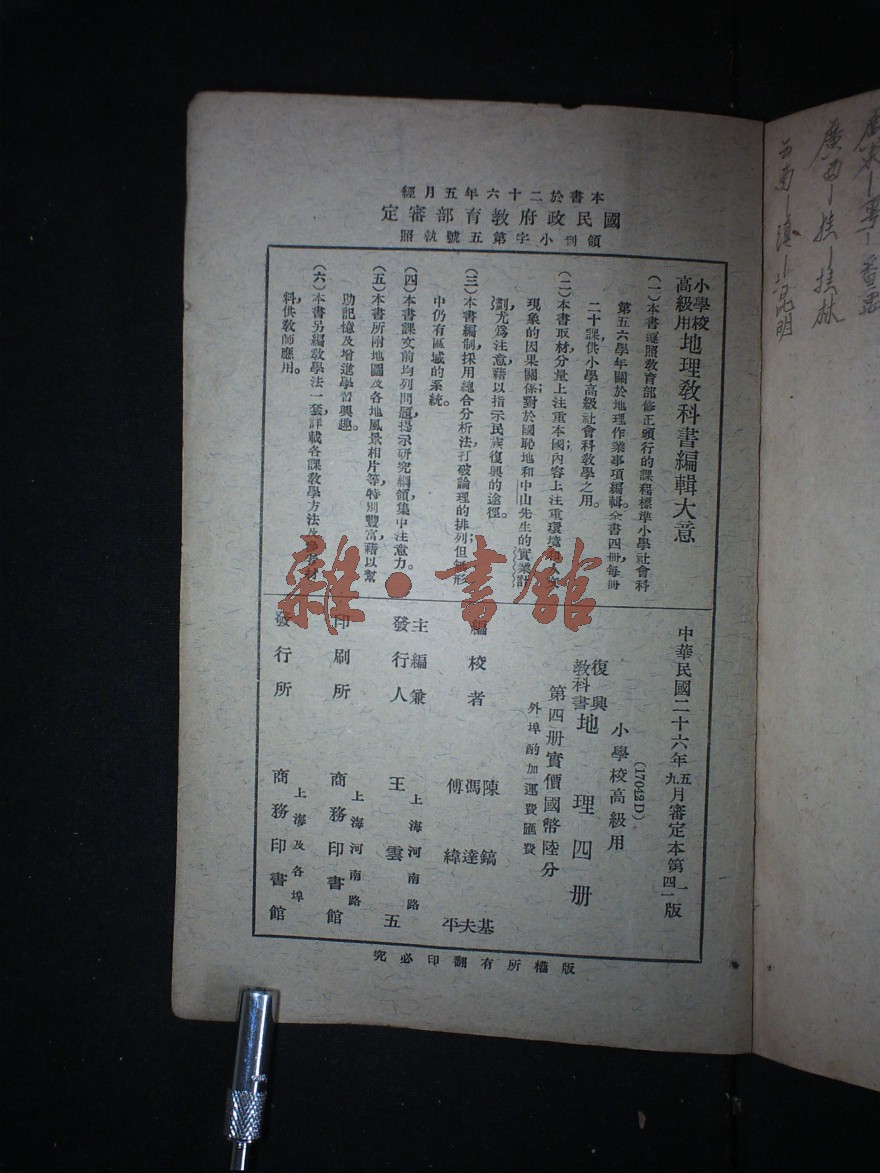 本書於二十六年五月經
國民政府教育部審定
領到小字第五號執照
小學校高級用地理教科書編輯大意
(一)本書遵照教育部修正頒行的課程標準小學社會科
第五六學年關於地理作業事項編輯全書四冊,每冊
二十課,供小學高級社會科教學之用。
(二)本書取材,分量上注重本國;內容上注重環境和人
現象的因果關係;對於國恥地和中山先生的實業計
劃,尤爲注意,藉以指示民族復興的途徑。
(三)本書編制,採用總合分析法,打破論理的排列,但無形
中仍有區域的系統。
(四)本書課文前均列問題,提示研究綱領,集中注意力。
(五)本書所附地圖及各地風景相片等,特別豐富,藉以幫
助記憶及增進學習興趣。
(六)本書另編教學法一套,詳載各課教學方法及參考材
料,供教師應用。
中華民國二十六年五九月審定本第一四一版
(17042D)
小學校高級用
復興教科書 地理四冊
第四冊實價國幣陸分
外埠酌加運費匯費
編校者 陳鎬基 馮達夫 傅緯平
主編兼發行人 王雲五
上海河南路
印刷所 商務印書館
上海河南路
發行所 商務印書館
上海及各埠
版權所有翻印必究
廣西-桂-桂林
雲南-滇-昆明
雜·書館